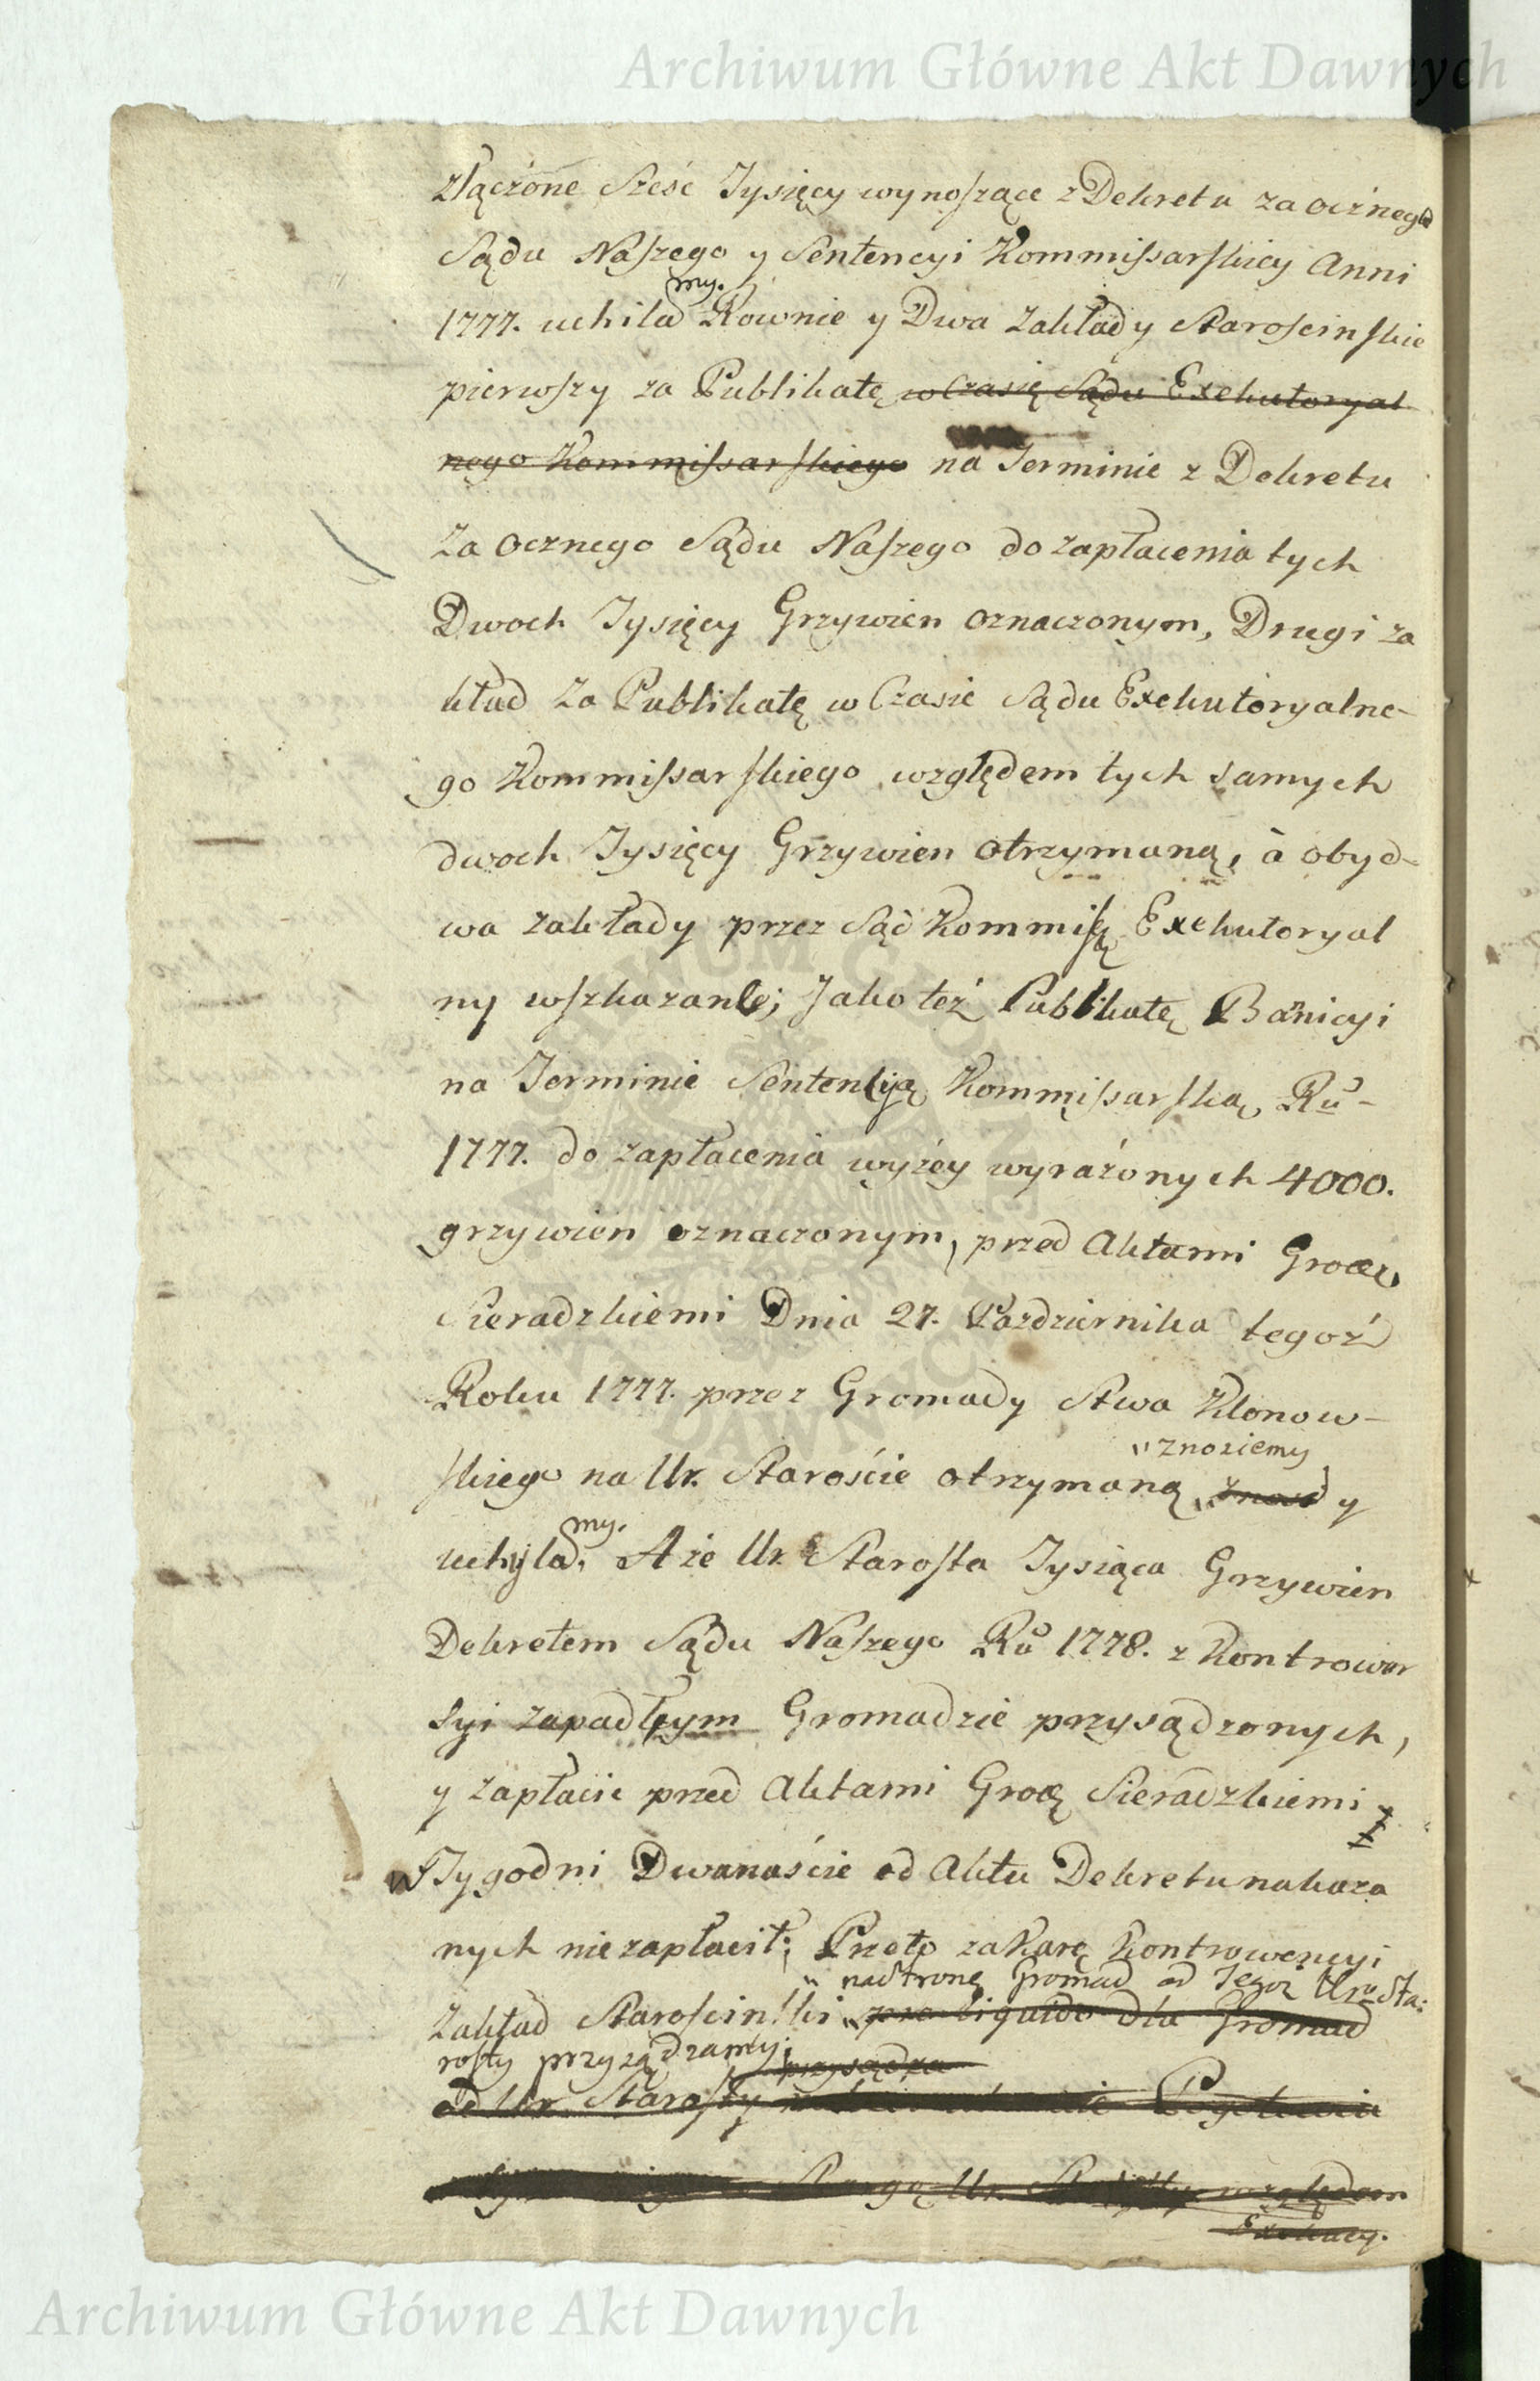 Archiwum Główne Akt Dawnych
złączone sześć Tysięcy wynoszące z Dekretu zaocznego
Sądu Naszego y Sentencyi Kommissarskiey Anni
my.
1777. uchila Rownie y Dwa zakłady Starościnskie
pierwszy za Publikatę w Czasię Sądu Exekutoryal
nego Kommissarskiego na Terminie z Dekretu
za ocznego Sądu Naszego do zapłacenia tych
Dwoch Tysięcy Grzywien oznaczonym, Drugi za
kład za Publikatę w Czasie Sądu Exekutoryalne-
go Kommissarskiego względem tych samych
dwoch Tysięcy Grzywien otrzymaną, à obyd-
wa zakłady przez Sąd Kommisą Exekutoryal
ny wskazane; Jako też Publikatę Banicyi
na Terminie Sentencyą Kommissarską Ru-
1777. do zapłacenia wyżey wyrażonych 4000.
grzywien oznaczonym, przed Aktami Grodz
Sieradzkiemi Dnia 27. Pazdziernika tegoż
Roku 1777. przez Gromady Stwa Klonow-
znosiemy
skiego na Ur. Starościie otrzymaną znosi y
my.
uchyla, A że Ur. Starosta Tysiąca Grzywien
Dekretem Sądu Naszego Ru 1778. z Kontrower
syi zapadłym Gromadzie przysądzonych,
y zapłacie przed Aktami Grodz Sieradzkiemi
w Tygodni Dwanaście od Aktu Dekretu nakaza
nych niezapłacił; Przeto za Karę Kontrawencyi
nastronę Gromad od Tegoż Uro Sta:
Zakład Starościnski pro liquido dla Gromad
rosty przysądzamy; przysądza
od Ur. Starosty
Ur. względem
Exekucy.
Archiwum Główne Akt Dawnych